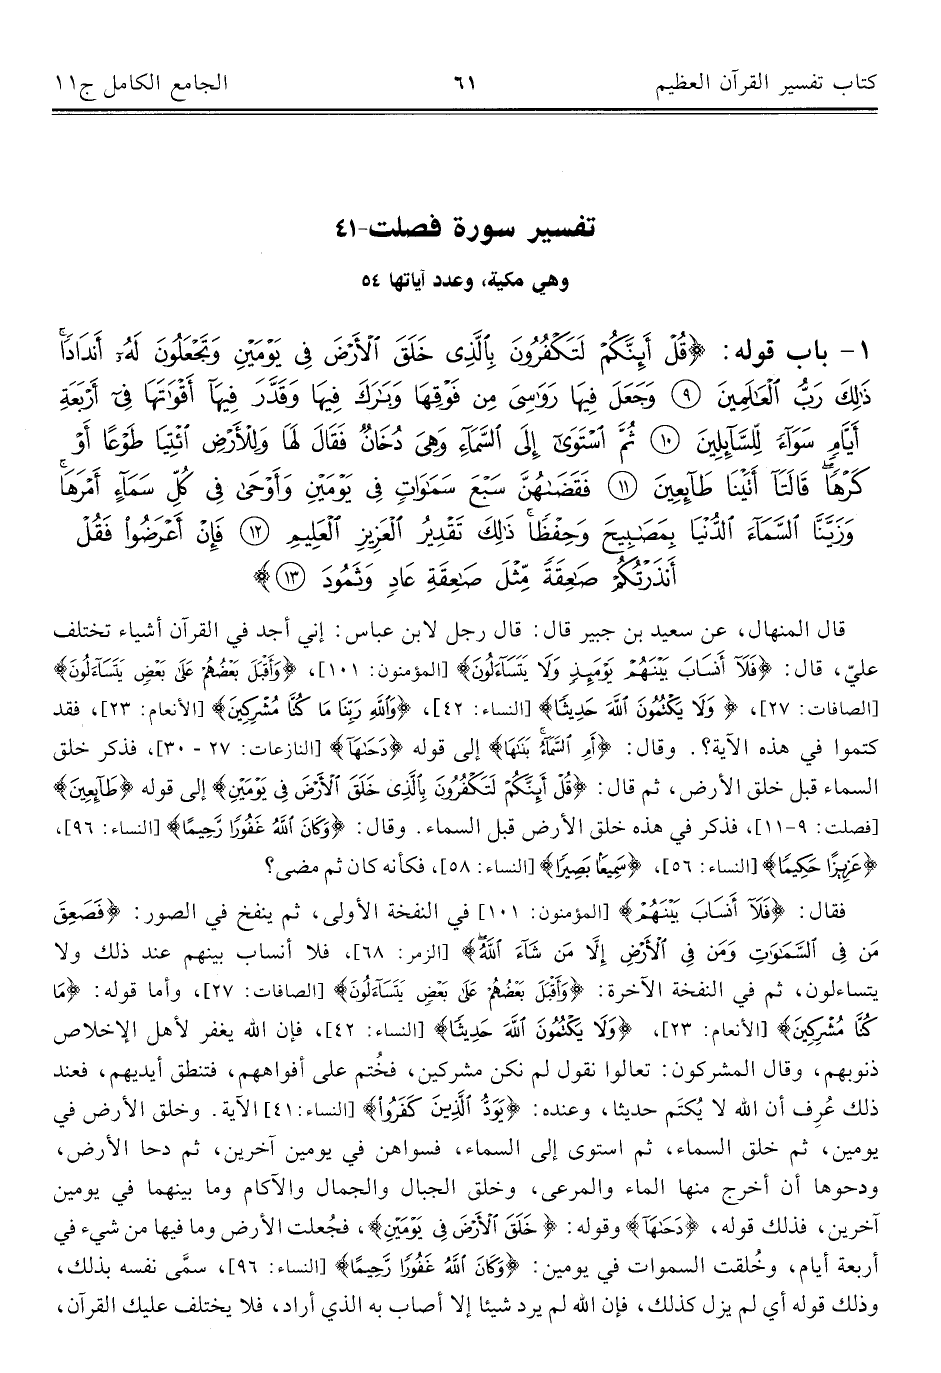 كتاب تفسير القرآن العظيم ٦١ الجامع الكامل ج١١
تفسير سورة فصلت-٤١
وهي مكية، وعدد آياتها ٥٤
١- باب قوله: ﴿قُلْ أَئِنَّكُمْ لَتَكْفُرُونَ بِالَّذِي خَلَقَ الْأَرْضَ فِي يَوْمَيْنِ وَتَجْعَلُونَ لَهُ أَندَادًا ۚ
ذَٰلِكَ رَبُّ الْعَالَمِينَ ٩ وَجَعَلَ فِيهَا رَوَاسِيَ مِن فَوْقِهَا وَبَارَكَ فِيهَا وَقَدَّرَ فِيهَا أَقْوَاتَهَا فِي أَرْبَعَةِ
أَيَّامٍ سَوَاءً لِّلسَّائِلِينَ ١٠ ثُمَّ اسْتَوَىٰ إِلَى السَّمَاءِ وَهِيَ دُخَانٌ فَقَالَ لَهَا وَلِلْأَرْضِ ائْتِيَا طَوْعًا أَوْ
كَرْهًا ۖ قَالَتَا أَتَيْنَا طَائِعِينَ ١١ فَقَضَاهُنَّ سَبْعَ سَمَاوَاتٍ فِي يَوْمَيْنِ وَأَوْحَىٰ فِي كُلِّ سَمَاءٍ أَمْرَهَا ۚ
وَزَيَّنَّا السَّمَاءَ الدُّنْيَا بِمَصَابِيحَ وَحِفْظًا ۚ ذَٰلِكَ تَقْدِيرُ الْعَزِيزِ الْعَلِيمِ ١٢ فَإِنْ أَعْرَضُوا فَقُلْ
أَنذَرْتُكُمْ صَاعِقَةً مِّثْلَ صَاعِقَةِ عَادٍ وَثَمُودَ ١٣﴾
قال المنهال، عن سعيد بن جبير قال: قال رجل لابن عباس: إني أجد في القرآن أشياء تختلف
عليّ، قال: ﴿فَلَا أَنسَابَ بَيْنَهُمْ يَوْمَئِذٍ وَلَا يَتَسَاءَلُونَ﴾ [المؤمنون: ١٠١]، ﴿وَأَقْبَلَ بَعْضُهُمْ عَلَىٰ بَعْضٍ يَتَسَاءَلُونَ﴾
[الصافات: ٢٧]، ﴿وَلَا يَكْتُمُونَ اللَّهَ حَدِيثًا﴾ [النساء: ٤٢]، ﴿وَاللَّهِ رَبِّنَا مَا كُنَّا مُشْرِكِينَ﴾ [الأنعام: ٢٣]، فقد
كتموا في هذه الآية؟. وقال: ﴿أَمِ السَّمَاءُ ۚ بَنَاهَا﴾ إلى قوله ﴿دَحَاهَا﴾ [النازعات: ٢٧ - ٣٠]، فذكر خلق
السماء قبل خلق الأرض، ثم قال: ﴿قُلْ أَئِنَّكُمْ لَتَكْفُرُونَ بِالَّذِي خَلَقَ الْأَرْضَ فِي يَوْمَيْنِ﴾ إلى قوله ﴿طَائِعِينَ﴾
[فصلت: ٩-١١]، فذكر في هذه خلق الأرض قبل السماء. وقال: ﴿وَكَانَ اللَّهُ غَفُورًا رَّحِيمًا﴾ [النساء: ٩٦]،
﴿عَزِيزًا حَكِيمًا﴾ [النساء: ٥٦]، ﴿سَمِيعًا بَصِيرًا﴾ [النساء: ٥٨]، فكأنه كان ثم مضى؟
فقال: ﴿فَلَا أَنسَابَ بَيْنَهُمْ﴾ [المؤمنون: ١٠١] في النفخة الأولى، ثم ينفخ في الصور: ﴿فَصَعِقَ
مَن فِي السَّمَاوَاتِ وَمَن فِي الْأَرْضِ إِلَّا مَن شَاءَ اللَّهُ ۖ﴾ [الزمر: ٦٨]، فلا أنساب بينهم عند ذلك ولا
يتساءلون، ثم في النفخة الآخرة: ﴿وَأَقْبَلَ بَعْضُهُمْ عَلَىٰ بَعْضٍ يَتَسَاءَلُونَ﴾ [الصافات: ٢٧]، وأما قوله: ﴿مَا
كُنَّا مُشْرِكِينَ﴾ [الأنعام: ٢٣]، ﴿وَلَا يَكْتُمُونَ اللَّهَ حَدِيثًا﴾ [النساء: ٤٢]، فإن الله يغفر لأهل الإخلاص
ذنوبهم، وقال المشركون: تعالوا نقول لم نكن مشركين، فخُتم على أفواههم، فتنطق أيديهم، فعند
ذلك عُرِف أن الله لا يُكتَم حديثا، وعنده: ﴿يَوَدُّ الَّذِينَ كَفَرُوا﴾ [النساء: ٤١] الآية. وخلق الأرض في
يومين، ثم خلق السماء، ثم استوى إلى السماء، فسواهن في يومين آخرين، ثم دحا الأرض،
ودحوها أن أخرج منها الماء والمرعى، وخلق الجبال والجمال والآكام وما بينهما في يومين
آخرين، فذلك قوله، ﴿دَحَاهَا﴾ وقوله: ﴿خَلَقَ الْأَرْضَ فِي يَوْمَيْنِ﴾، فجُعلت الأرض وما فيها من شيء في
أربعة أيام، وخُلقت السموات في يومين: ﴿وَكَانَ اللَّهُ غَفُورًا رَّحِيمًا﴾ [النساء: ٩٦]، سمَّى نفسه بذلك،
وذلك قوله أي لم يزل كذلك، فإن الله لم يرد شيئا إلا أصاب به الذي أراد، فلا يختلف عليك القرآن،